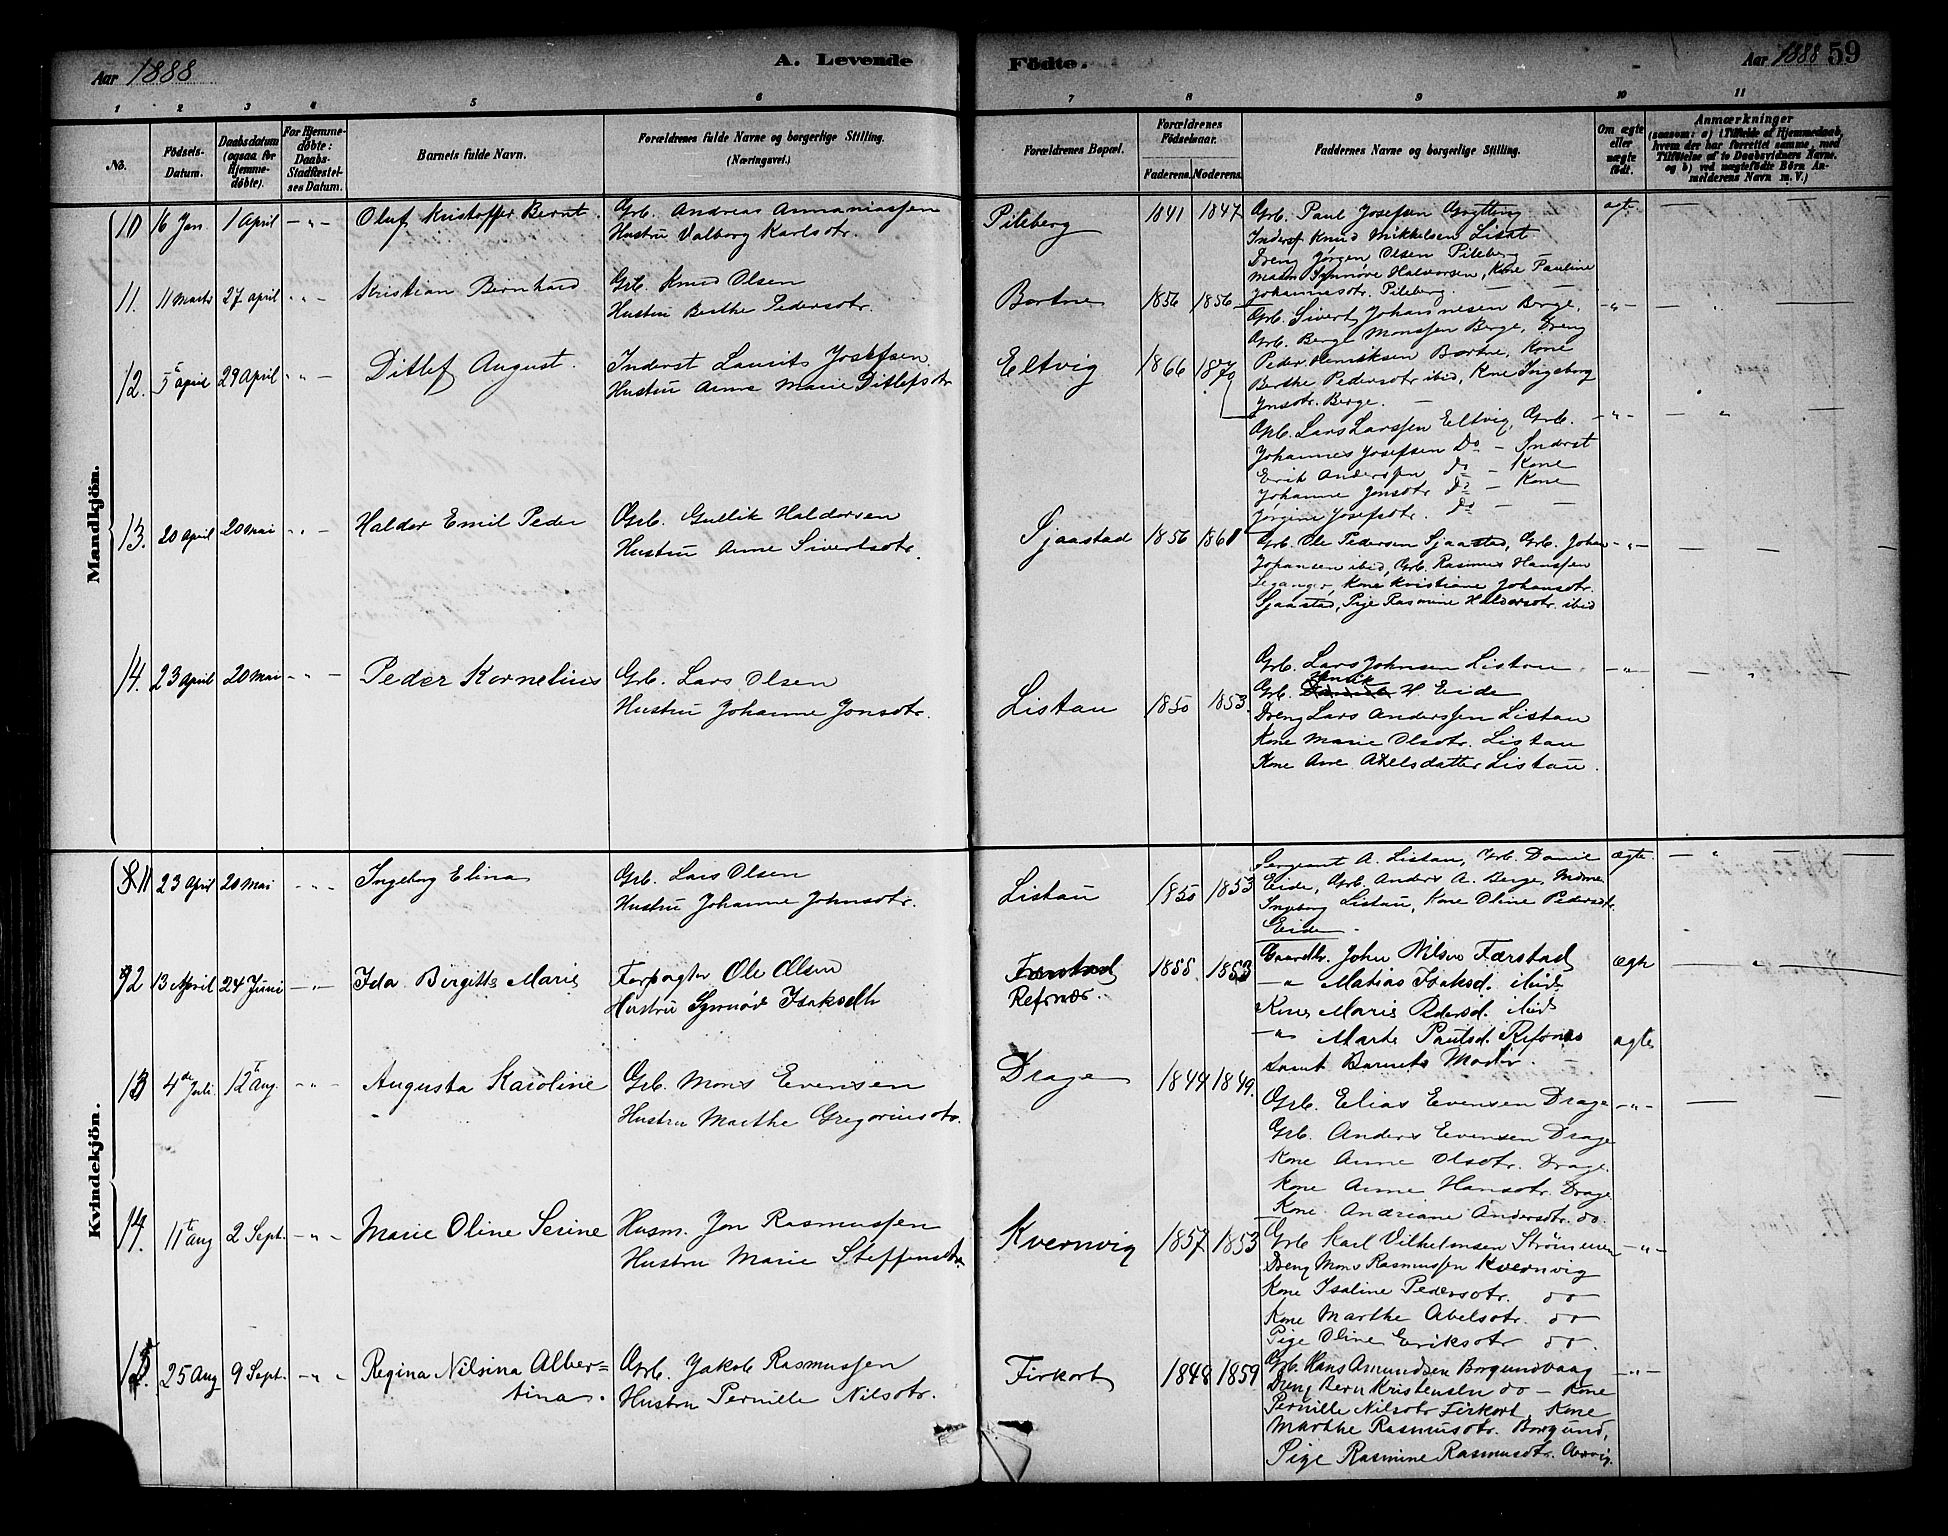 Aar 1888
A. Levende
Födte.
Aar 1888 59
1 2 3 4 5 6 7 8 9 10 11
No.
Födsels-Datum.
Daabsdatum (ogsaa for Hjemme-döbte).
For Hjemme-döbte: Daabs-Stadfæstel-ses Datum.
Barnets fulde Navn.
Forældrenes fulde Navne og borgerlige Stilling. (Næringsvei.)
Forældrenes Bopæl.
Forældrenes Födselsaar.
Faderens. Moderens.
Faddernes Navne og borgerlige Stilling.
Om ægte eller uægte födt.
Anmærkninger
(saasom: a) i Tilfælde af Hjemmedaab, hvem der har forrettet samme, med Tilföielse af to Daabsvidners Navne. og b) ved uægtefödte Börn An-melderens Navn m. V.)
Mandkjön.
10 16 Jan. 1 April – " – Oluf Kristoffer Bernt. Grb. Andreas Annaniassen
Hustru Valborg Karlsdtr.
Pileberg 1841 1847 Grb. Paul Josefsen Grytting ægt.
Inderst Knud Mikkelsen Liset
Dreng Jørgen Olsen Pileberg
Madm Synnøve Halvorsen, Kone Pauline
Johannesdtr. Pileberg.
11. 11 Marts 27 april " – Kristian Bernhard Grb. Knud Olsen
Hustru Berthe Pedersdtr.
Bortne 1856 1856 Grb. Sivert Johannesen Berge, – " –
Grb. Berge Monssen Berge, Dreng
Peder Henriksen Bortne, Kone
Berthe Pedersdtr ibid, Kone Ingeborg
Jnsdtr. Berge.
12. 5t april 29 April " – Ditlef August. Inderst Laurits Josefsen
Hustru Anna Marie Ditlefsdtr
Eltvig 1866 Grb. Lars Larssen Eltvig, Grb. – " –
Johannes Josefsen Do – Inderst
Erik Anderssen do – Kone
Johanne Jonsdtr. Do – Kone
Jørgine Josefsdtr. Do – –
13. 20 April 20 Mai " – Haldor Emil Peder Grb. Gullik Haldorsen
Hustru Anne Sivertsdtr.
Sjaastad 1856 1861 Grb. Ole Pedersen Sjaastad, Grb. Johan – " –
Johansen ibid, Grb. Rasmus Hanssen
Leganger, Kone Kristiane Johansdtr.
Sjaastad, Pige Rasmine Haldorsdtr. ibid
14. 23 April 20 Mai – " – Peder Kornelius Grb. Lars Olsen
Hustru Johanne Jonsdtr.
Listau 1850 1853. Grb. Lars Johnsen Listau. – " –
Grb. H Eide
Dreng Lars Anderssen Listau
Kone Marie Olsdtr. Listau
Kone Ane Akelsdatter Listau.
Kvindekjön.
11 23 April 20 Mai " Ingeborg Elina Grb. Lars Olsen
Hustru Johanne Johnsdtr.
Listau 1850 1853 Sergeant A. Listau, Grb. Daniel ægte.
Eide, Grb. Anders A. Berge, Madm
Ingeborg Listau, Kone Oline Pedersdtr.
Eide.
12 13 April 24 Juni – " – Ida Birgitte Marie Forpagter Ole Olsen
Hustru Synnøve Isaksdtr
Refsnæs. 1855 1853 Gaardbr. John Nilsen Færstad ægte
– " Matias Isaksd. ibid
Kone Marie Pedersd. ibid
– " Marte Paulsd. Refsnæs ægte
samt Barnets Moder.
13 4de Juli 12t Aug. – " – Augusta Karoline Grb. Mons Evensen
Hustru Marthe Gregoriusdtr.
Drage 1844 1849. Grb. Elias Evensen Drage – " –
Grb. Anders Evensen Drage
Kone Anne Olsdtr. Drage.
Kone Anne Hansdtr. Drage
Kone Andriane Andersdtr. do.
14. 11t aug 2 Sept. – " – Marie Oline Serine Husm. Jon Rasmussen
Hustru Marie Steffensdtr.
Kvernvig 1857 1853 Grb Karl Vilhelmsen Strømmen – " –
Dreng Mons Rasmussen Kvernvig
Kone Isaline Pedersdtr. do
Kone Marthe Abelsdtr. do
Pige Oline Eriksdtr do.
15. 25 Aug 9 Sept. – " – Regina Nilsina Alber=tina. Grb. Jakob Rasmussen
Hustru Pernille Nilsdtr.
Firkort 1848 1859 Grb. Hans Amundsen Borgundvaag – " –
Dreng Bern Kristensen do – Kone
Pernille Nilsdtr Firkort, Kone
Marthe Rasmusdtr. Borgund,
Pige Rasmine Rasmusdtr.